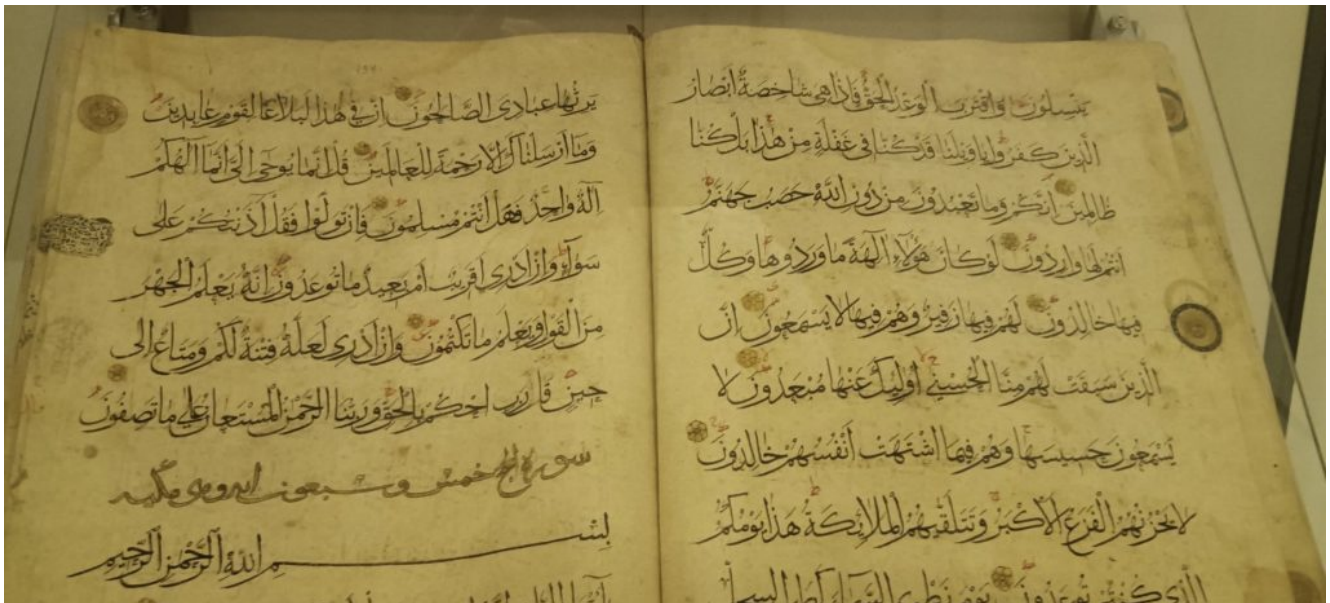 يَنْسِلُونَ وَاقْتَرَبَ الْوَعْدُ الْحَقُّ فَإِذَا هِيَ شَاخِصَةٌ أَبْصَارُ
الَّذِينَ كَفَرُوا يَا وَيْلَنَا قَدْ كُنَّا فِي غَفْلَةٍ مِنْ هٰذَا بَلْ كُنَّا
ظَالِمِينَ إِنَّكُمْ وَمَا تَعْبُدُونَ مِنْ دُونِ اللَّهِ حَصَبُ جَهَنَّمَ
أَنْتُمْ لَهَا وَارِدُونَ لَوْ كَانَ هٰؤُلَاءِ آلِهَةً مَا وَرَدُوهَا وَكُلٌّ
فِيهَا خَالِدُونَ لَهُمْ فِيهَا زَفِيرٌ وَهُمْ فِيهَا لَا يَسْمَعُونَ إِنَّ
الَّذِينَ سَبَقَتْ لَهُمْ مِنَّا الْحُسْنَى أُولَئِكَ عَنْهَا مُبْعَدُونَ لَا
يَسْمَعُونَ حَسِيسَهَا وَهُمْ فِيمَا اشْتَهَتْ أَنْفُسُهُمْ خَالِدُونَ
لَا يَحْزُنُهُمُ الْفَزَعُ الْأَكْبَرُ وَتَتَلَقَّيهُمُ الْمَلَائِكَةُ هَذَا يَوْمُكُمُ
الَّذِي كُنْتُمْ تُوعَدُونَ يَوْمَ نَطْوِي السَّمَاءَ كَطَيِّ السِّجِلِّ
يَرِثُهَا عِبَادِيَ الصَّالِحُونَ إِنَّ فِي هٰذَا لَبَلَاغًا لِقَوْمٍ عَابِدِينَ
وَمَا أَرْسَلْنَاكَ إِلَّا رَحْمَةً لِلْعَالَمِينَ قُلْ إِنَّمَا يُوحَى إِلَيَّ أَنَّمَا إِلٰهُكُمْ
إِلٰهٌ وَاحِدٌ فَهَلْ أَنْتُمْ مُسْلِمُونَ فَإِنْ تَوَلَّوْا فَقُلْ آذَنْتُكُمْ عَلَى
سَوَاءٍ وَإِنْ أَدْرِي أَقَرِيبٌ أَمْ بَعِيدٌ مَا تُوعَدُونَ إِنَّهُ يَعْلَمُ الْجَهْرَ
مِنَ الْقَوْلِ وَيَعْلَمُ مَا تَكْتُمُونَ وَإِنْ أَدْرِي لَعَلَّهُ فِتْنَةٌ لَكُمْ وَمَتَاعٌ إِلَى
حِينٍ قَالَ رَبِّ احْكُمْ بِالْحَقِّ وَرَبُّنَا الرَّحْمٰنُ الْمُسْتَعَانُ عَلَى مَا تَصِفُونَ
سورة الحج خمس وسبعون آية وهي مكية
بِسْمِ اللَّهِ الرَّحْمٰنِ الرَّحِيمِ